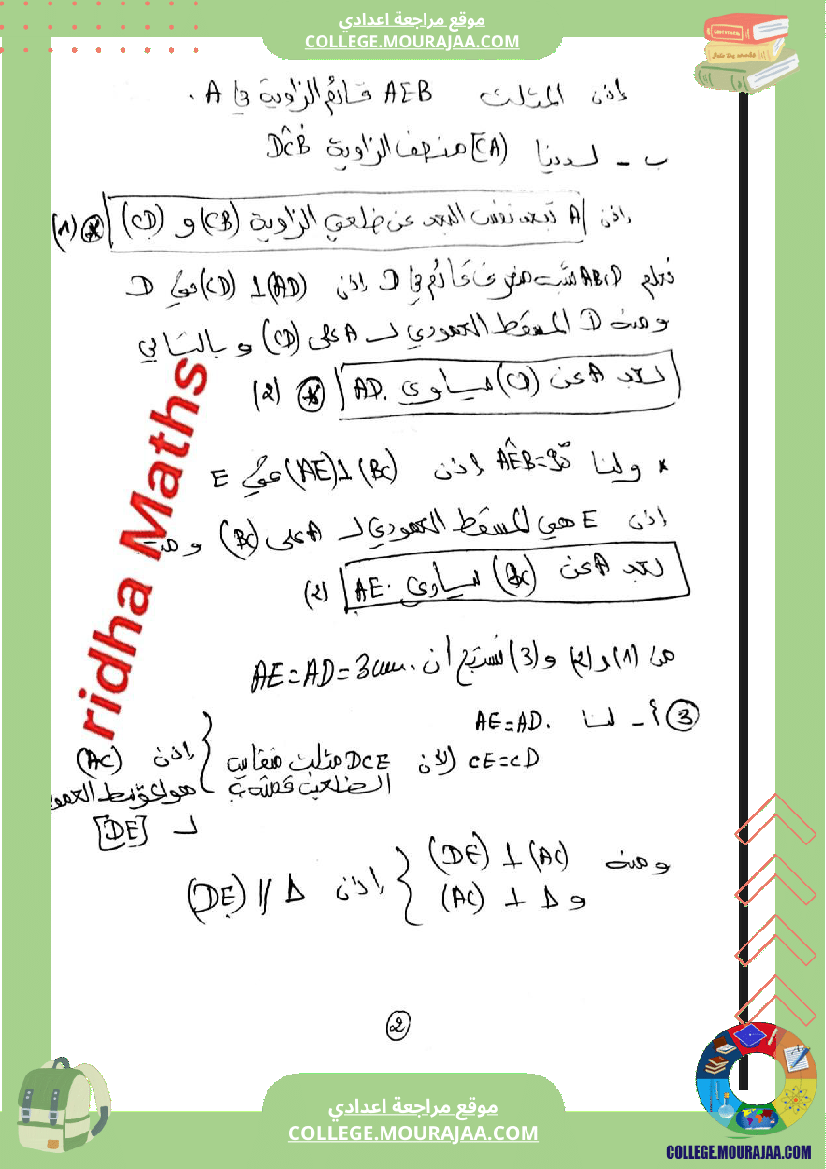 موقع مراجعة اعدادي
COLLEGE.MOURAJAA.COM
إذن المثلث AEB قائم الزاوية في A.
ب - لدينا [CA) منصف الزاوية DĈB
إذن A تبعد نفس البعد عن ضلعي الزاوية (CB) و (CD) (1)
نعلم ABCD شبه منحرف قائم في D إذن (AD) ⊥ (CD) في D
ومنه D المسقط العمودي لـ A على (CD) وبالتالي
بعد A عن (CD) يساوي AD. (2)
* ولنا AÊB=90° إذن (BC)⊥(AE) في E
إذن E هي المسقط العمودي لـ A على (BC) ومنه
بعد A عن (BC) يساوي AE. (2)
من (1) و (2) و (3) نستنتج أن AE=AD=3cm.
3 أ - لنا AE=AD.
CE=CD لأن DCE مثلث متقايس إذن (AC)
الضلعين قمته C هو الموسط العمو
لـ [DE]
ومنه (DE) ⊥ (AC)
و (AC) ⊥ Δ إذن (DE) // Δ
2
ridha Maths
موقع مراجعة اعدادي
COLLEGE.MOURAJAA.COM
COLLEGE.MOURAJAA.COM